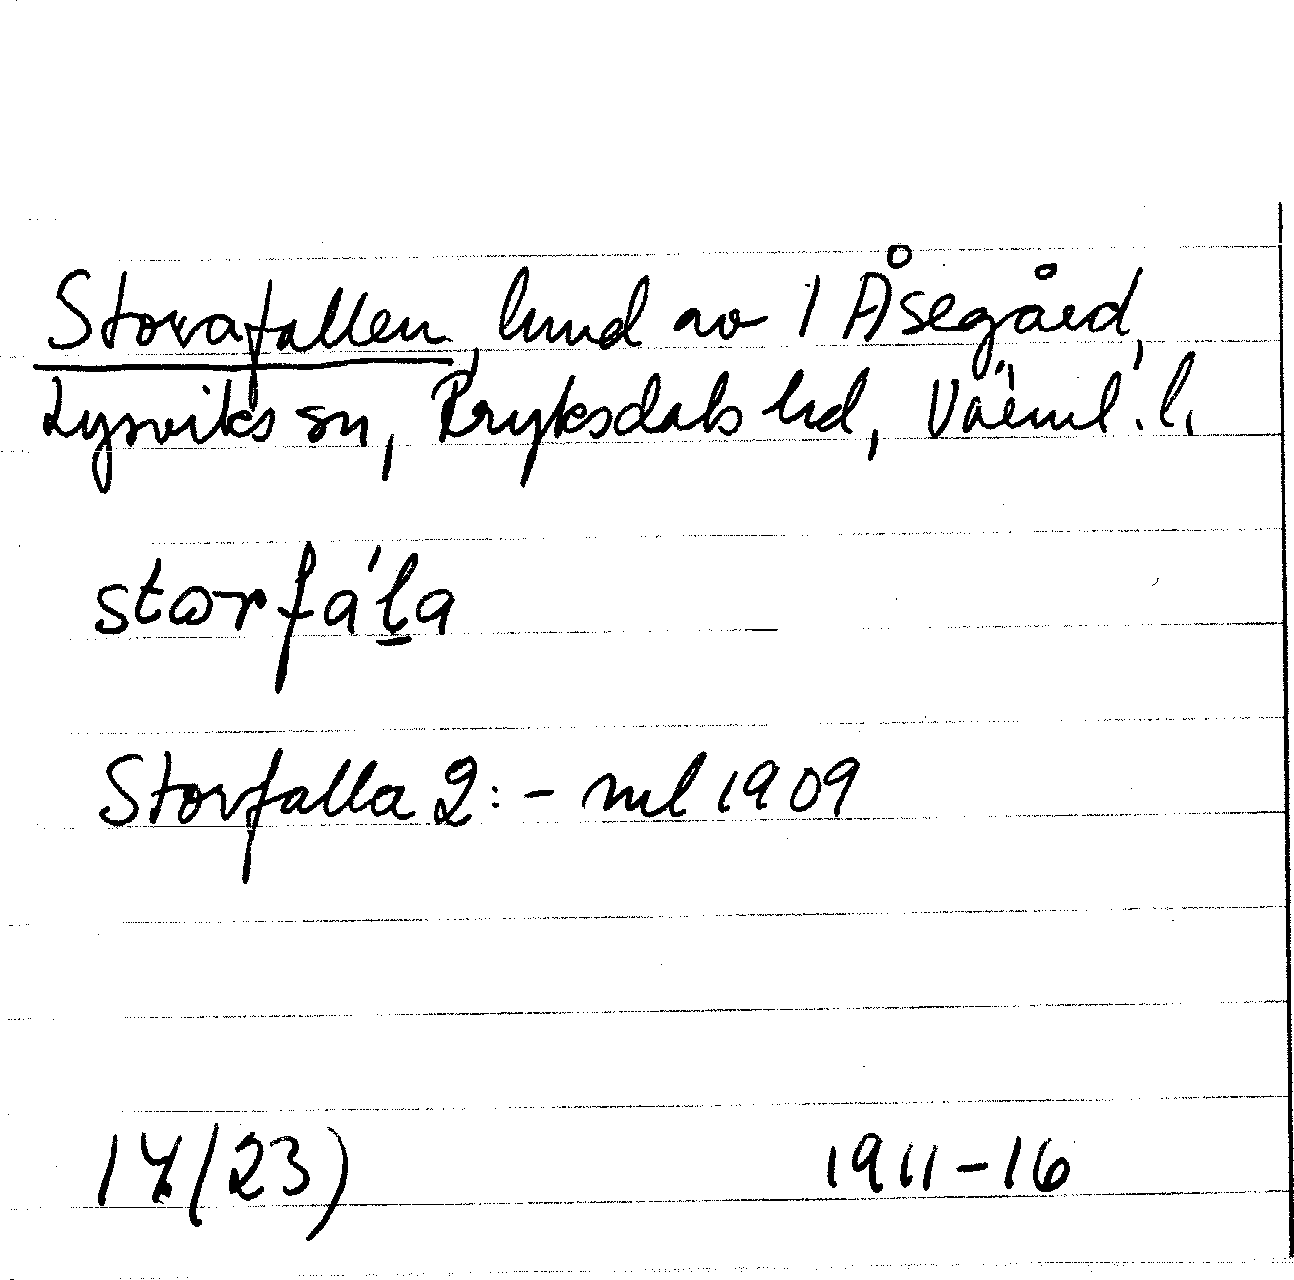 Storafallen, lund av 1 Åsegård,
Lysviks sn, Fryksdals hd, Värml. l.
stɷrfá'ḻa
Storfalla 2:- ml 1909
14/23)
1911-16